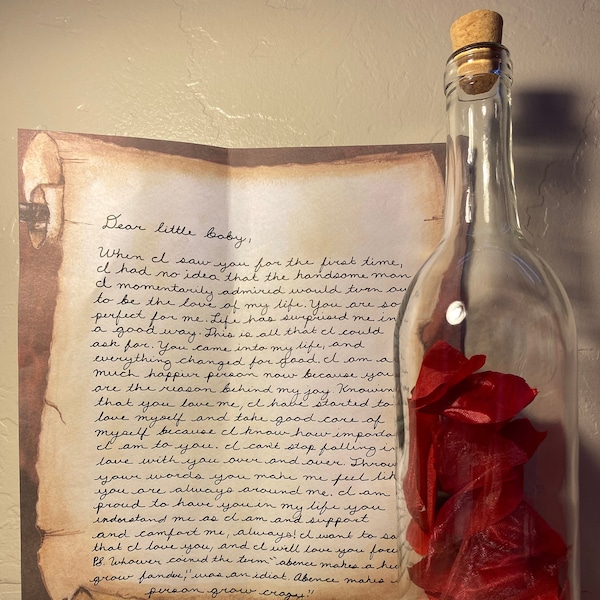 Dear little baby,
When I saw you for the first time,
I had no idea that the handsome man
I momentarily admired would turn ou
to be the love of my life. You are so
perfect for me. Life has surprised me in
a good way. This is all that I could
ask for. You came into my life, and
everything changed for good. I am a
much happier person now because you
are the reason behind my joy. Knowin
that you love me, I have started to
love myself and take good care of
myself because I know how importa
I am to you. I can't stop falling in
love with you over and over. Throu
your words you make me feel lik
you are always around me. I am
proud to have you in my life you
understand me as I am and support
and comfort me, always! I want to sa
that I love you, and I will love you fore
P.S. Whoever coined the term "abence makes a he
grow fonder," was an idiot. Abence makes
person grow crazy!"